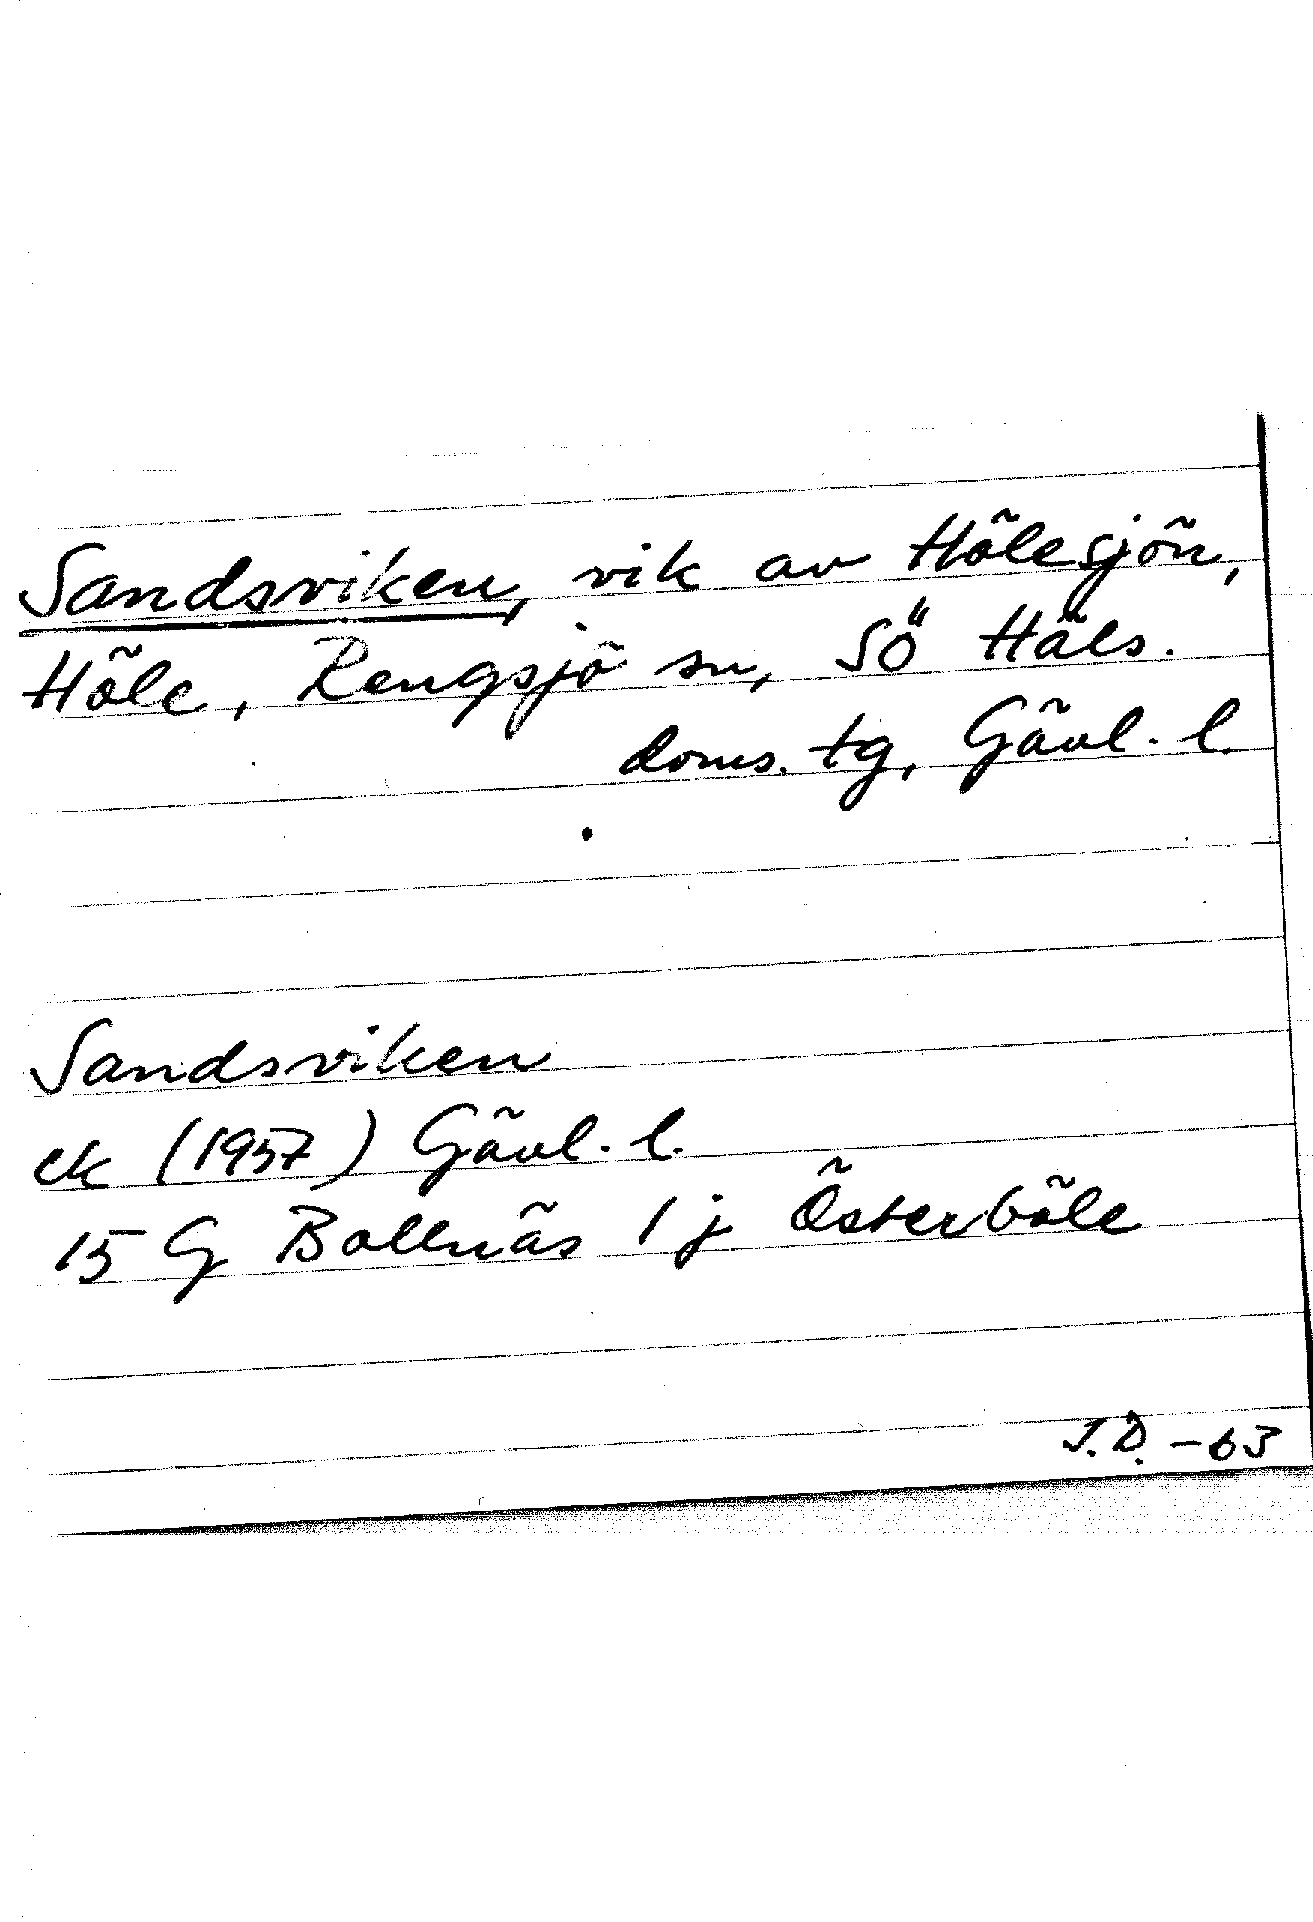 Sandsviken, vik av Hölesjön,
Höle, Rengsjö sn, SÖ Häls.
doms. tg, Gävl. l.
Sandsviken
ek (1957) Gävl. l.
15 G Bollnäs 1 j Österböle
J.D. -63